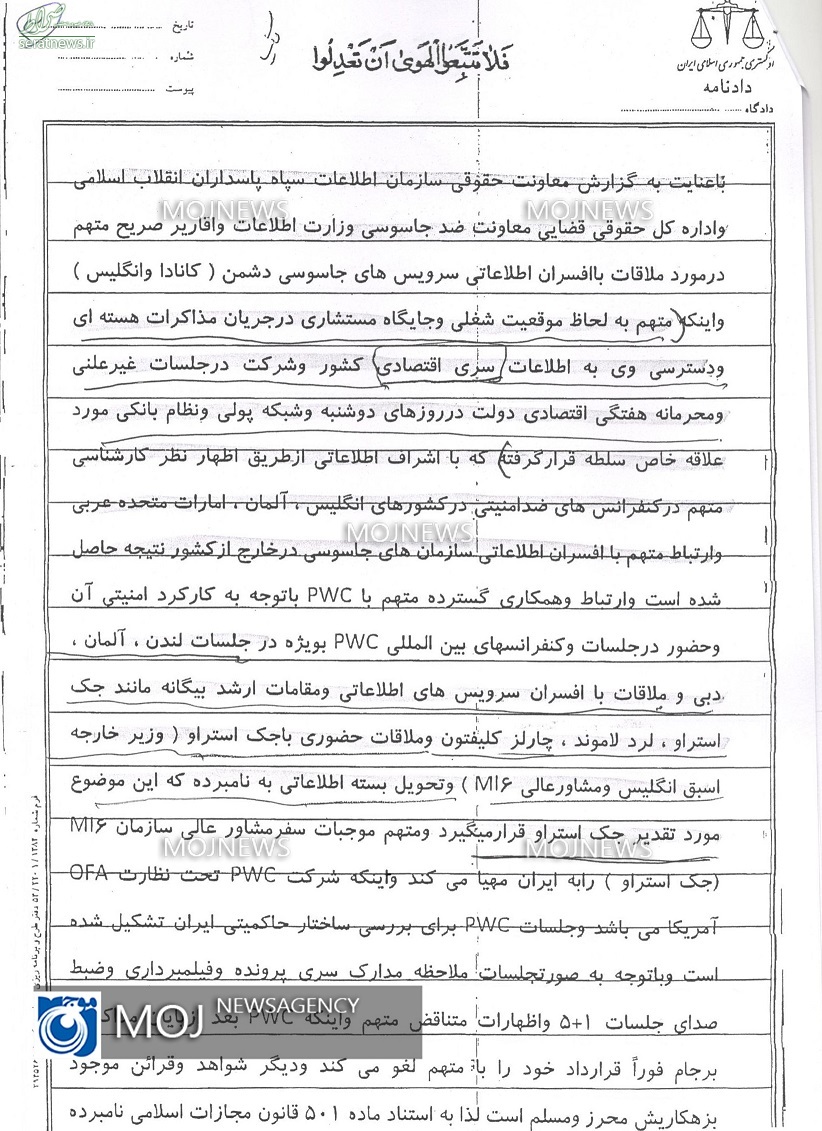 صراط
seratnews.ir
تاریخ
شماره
پیوست
فَلا تَتَّبِعُوا الْهَوىٰ اَنْ تَعْدِلُوا
دادگستری جمهوری اسلامی ایران
دادنامه
دادگاه
باعنایت به گزارش معاونت حقوقی سازمان اطلاعات سپاه پاسداران انقلاب اسلامی
واداره کل حقوقی قضایی معاونت ضد جاسوسی وزارت اطلاعات واقاریر صریح متهم
درمورد ملاقات باافسران اطلاعاتی سرویس های جاسوسی دشمن ( کانادا وانگلیس )
واینکه متهم به لحاظ موقعیت شغلی وجایگاه مستشاری درجریان مذاکرات هسته ای
ودسترسی وی به اطلاعات سری اقتصادی کشور وشرکت درجلسات غیرعلنی
ومحرمانه هفتگی اقتصادی دولت درروزهای دوشنبه وشبکه پولی ونظام بانکی مورد
علاقه خاص سلطه قرارگرفته که با اشراف اطلاعاتی ازطریق اظهار نظر کارشناسی
متهم درکنفرانس های ضدامنیتی درکشورهای انگلیس ، آلمان ، امارات متحده عربی
وارتباط متهم با افسران اطلاعاتی سازمان های جاسوسی درخارج ازکشور نتیجه حاصل
شده است وارتباط وهمکاری گسترده متهم با PWC باتوجه به کارکرد امنیتی آن
وحضور درجلسات وکنفرانسهای بین المللی PWC بویژه در جلسات لندن ، آلمان ،
دبی و ملاقات با افسران سرویس های اطلاعاتی ومقامات ارشد بیگانه مانند جک
استراو ، لرد لاموند ، چارلز کلیفتون وملاقات حضوری باجک استراو ( وزیر خارجه
اسبق انگلیس ومشاورعالی MI۶ ) وتحویل بسته اطلاعاتی به نامبرده که این موضوع
مورد تقدیر جک استراو قرارمیگیرد ومتهم موجبات سفرمشاور عالی سازمان MI۶
(جک استراو ) رابه ایران مهیا می کند واینکه شرکت PWC تحت نظارت OFA
آمریکا می باشد وجلسات PWC برای بررسی ساختار حاکمیتی ایران تشکیل شده
است وباتوجه به صورتجلسات ملاحظه مدارک سری پرونده وفیلمبرداری وضبط
صدای جلسات ۱+۵ واظهارات متناقض متهم واینکه PWC بعد ازپایان
برجام فوراً قرارداد خود را با متهم لغو می کند ودیگر شواهد وقرائن موجود
بزهکاریش محرز ومسلم است لذا به استناد ماده ۵۰۱ قانون مجازات اسلامی نامبرده
MOJNEWS
MOJNEWS
MOJNEWS
MOJNEWS
MOJNEWS
MOJ NEWSAGENCY